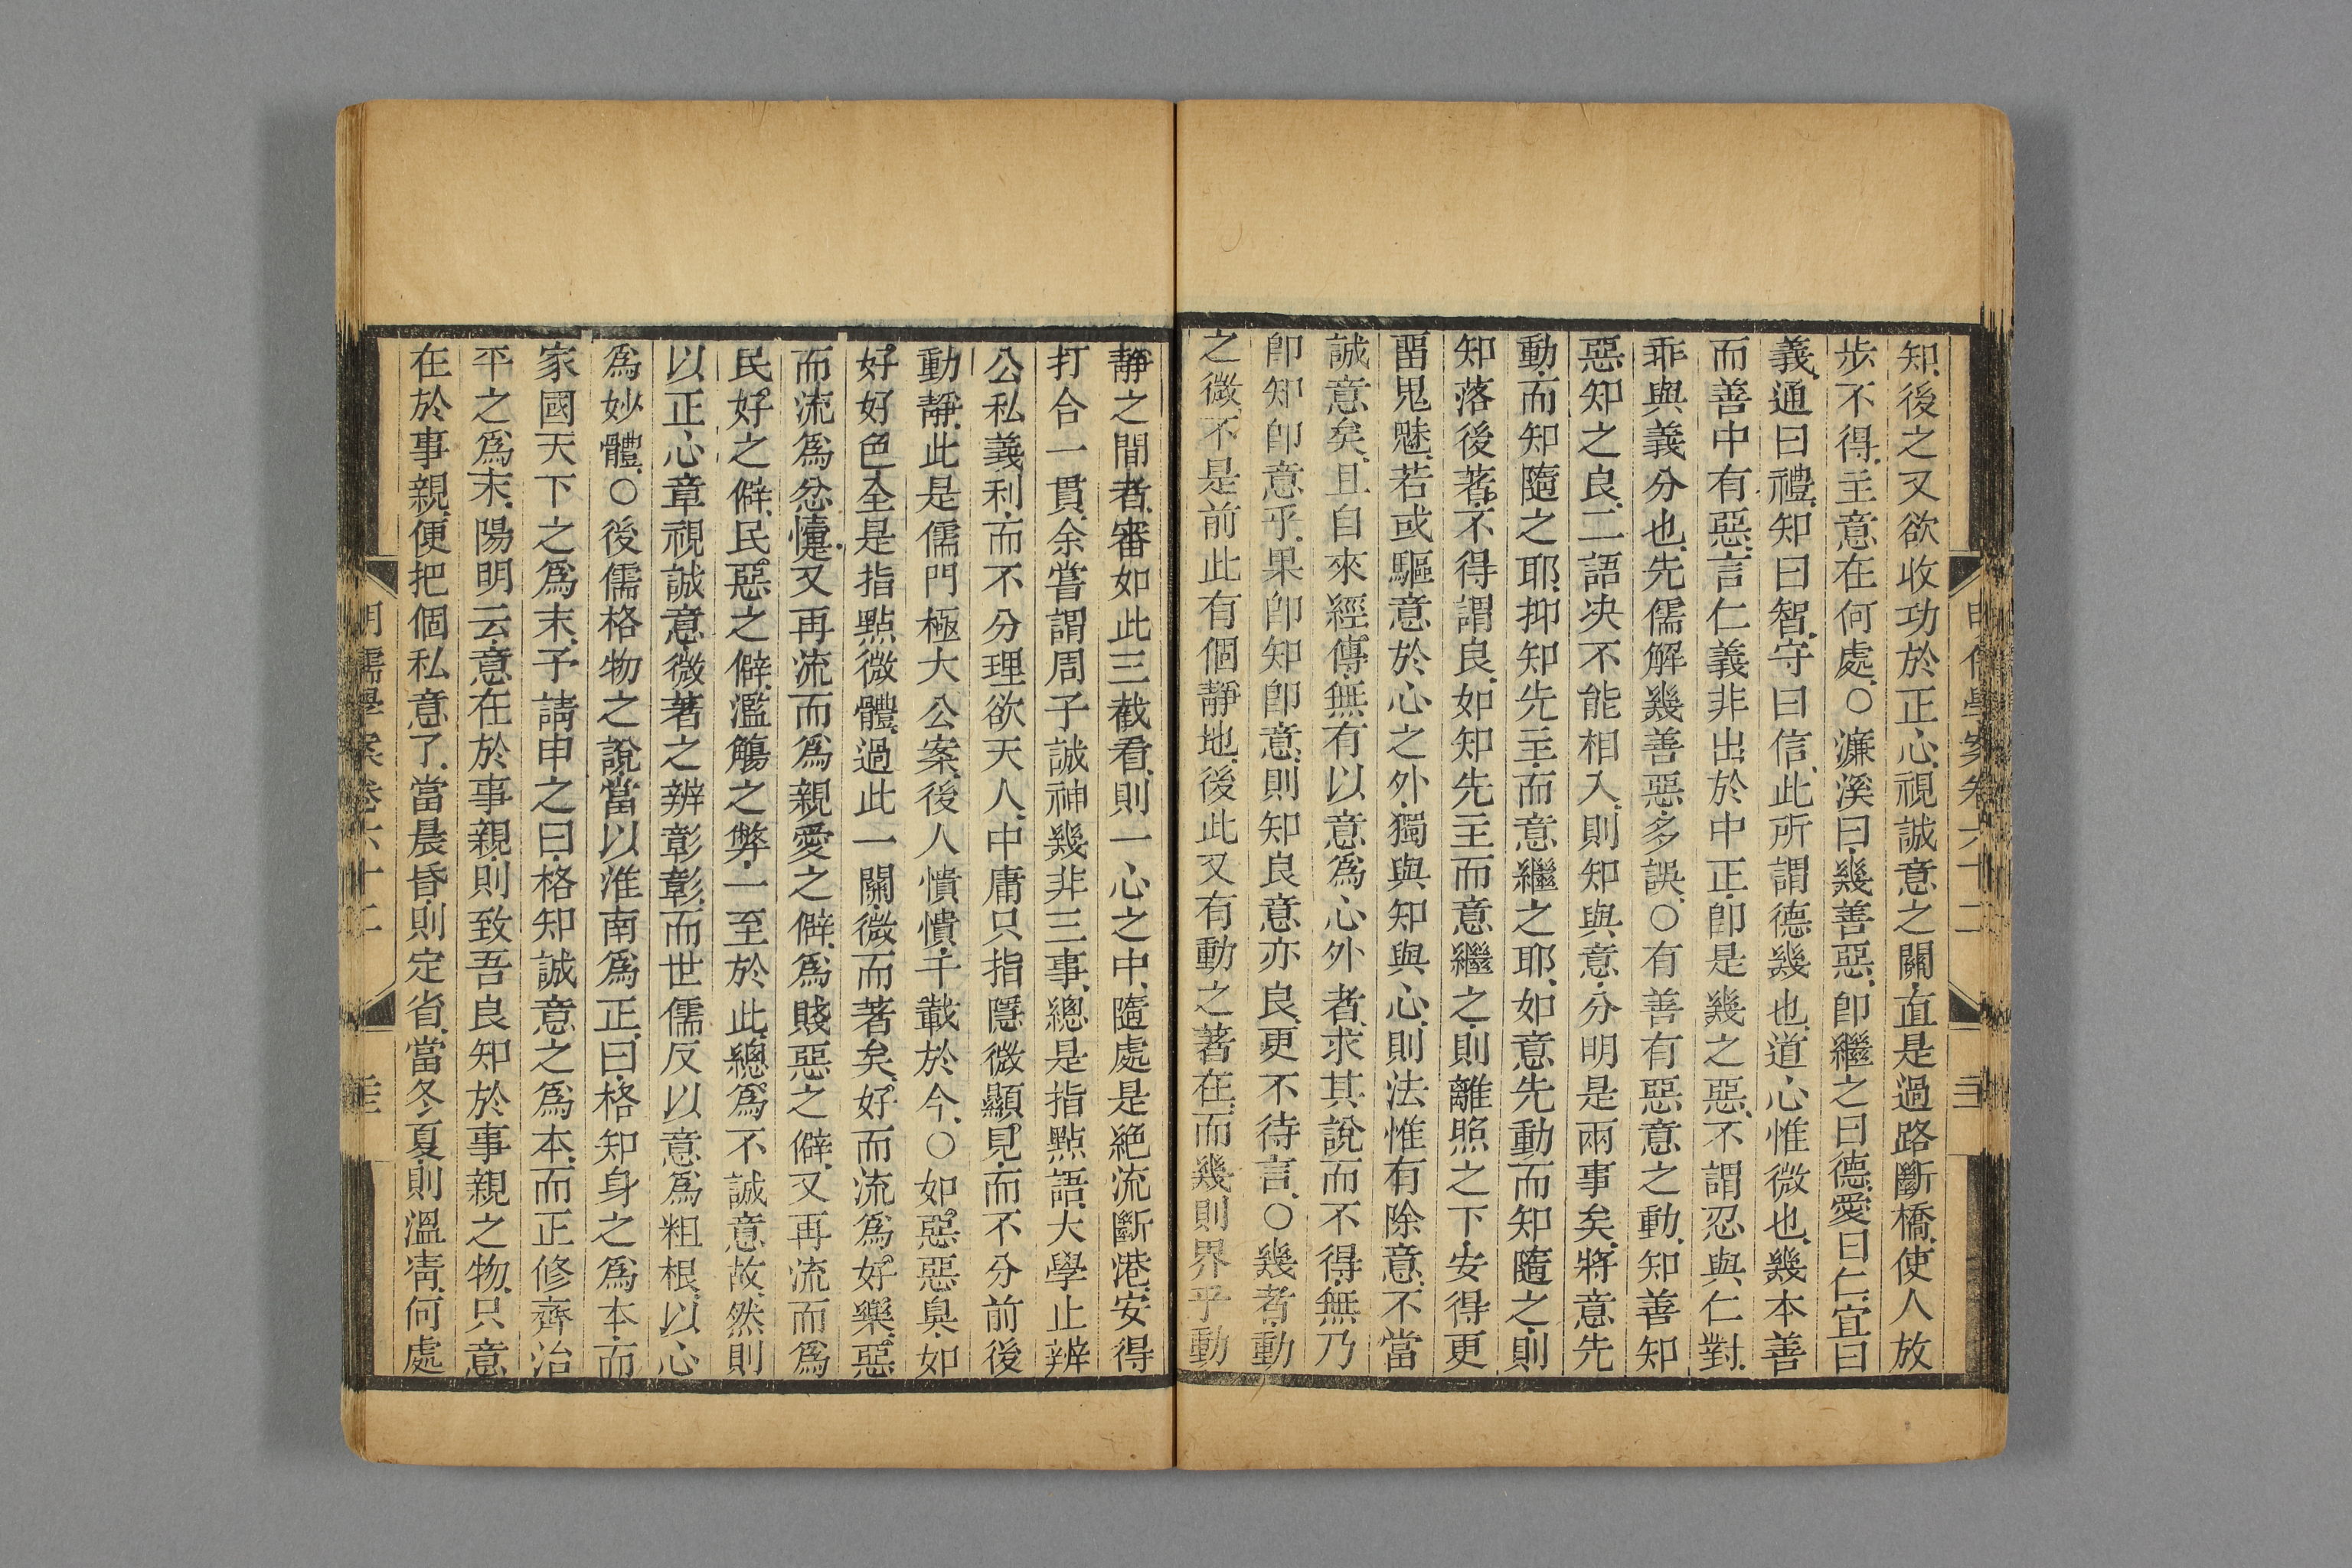 知後之又欲收功於正心視誠意之關直是過路斷橋使人放
步不得主意在何處○濂溪曰幾善惡卽繼之曰德愛曰仁宜曰
義通曰禮知曰智守曰信此所謂德幾也道心惟微也幾本善
而善中有惡言仁義非出於中正卽是幾之惡不謂忍與仁對
乖與義分也先儒解幾善惡多誤○有善有惡意之動知善知
惡知之良二語決不能相入則知與意分明是兩事矣將意先
動而知隨之耶抑知先主而意繼之耶如意先動而知隨之則
知落後著不得謂良如知先主而意繼之則離照之下安得更
畱鬼魅若或驅意於心之外獨與知與心則法惟有除意不當
誠意矣且自來經傳無有以意爲心外者求其說而不得無乃
卽知卽意乎果卽知卽意則知良意亦良更不待言○幾者動
之微不是前此有個靜地後此又有動之著在而幾則界乎動
靜之間者審如此三截看則一心之中隨處是絕流斷港安得
打合一貫余嘗謂周子誠神幾非三事總是指點語大學止辨
公私義利而不分理欲天人中庸只指隱微顯見而不分前後
動靜此是儒門極大公案後人憒憒千載於今○如惡惡臭如
好好色全是指點微體過此一關微而著矣好而流爲好樂惡
而流爲忿懥又再流而爲親愛之僻爲賤惡之僻又再流而爲
民好之僻民惡之僻濫觴之弊一至於此總爲不誠意故然則
以正心章視誠意微著之辨彰彰而世儒反以意爲粗根以心
爲妙體○後儒格物之說當以淮南爲正曰格知身之爲本而
家國天下之爲末予請申之曰格知誠意之爲本而正修齊治
平之爲末陽明云意在於事親則致吾良知於事親之物只意
在於事親便把個私意了當晨昏則定省當冬夏則溫凊何處
明儒學案卷六十二